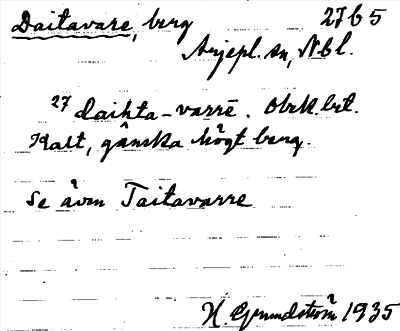 Daitavare, berg 27b5
Arjepl. sn, Nbl.
27 daihta-varrē. Obek. bet.
Kalt, ganska högt berg.
Se även Taitavarre
H. Grundström 1935